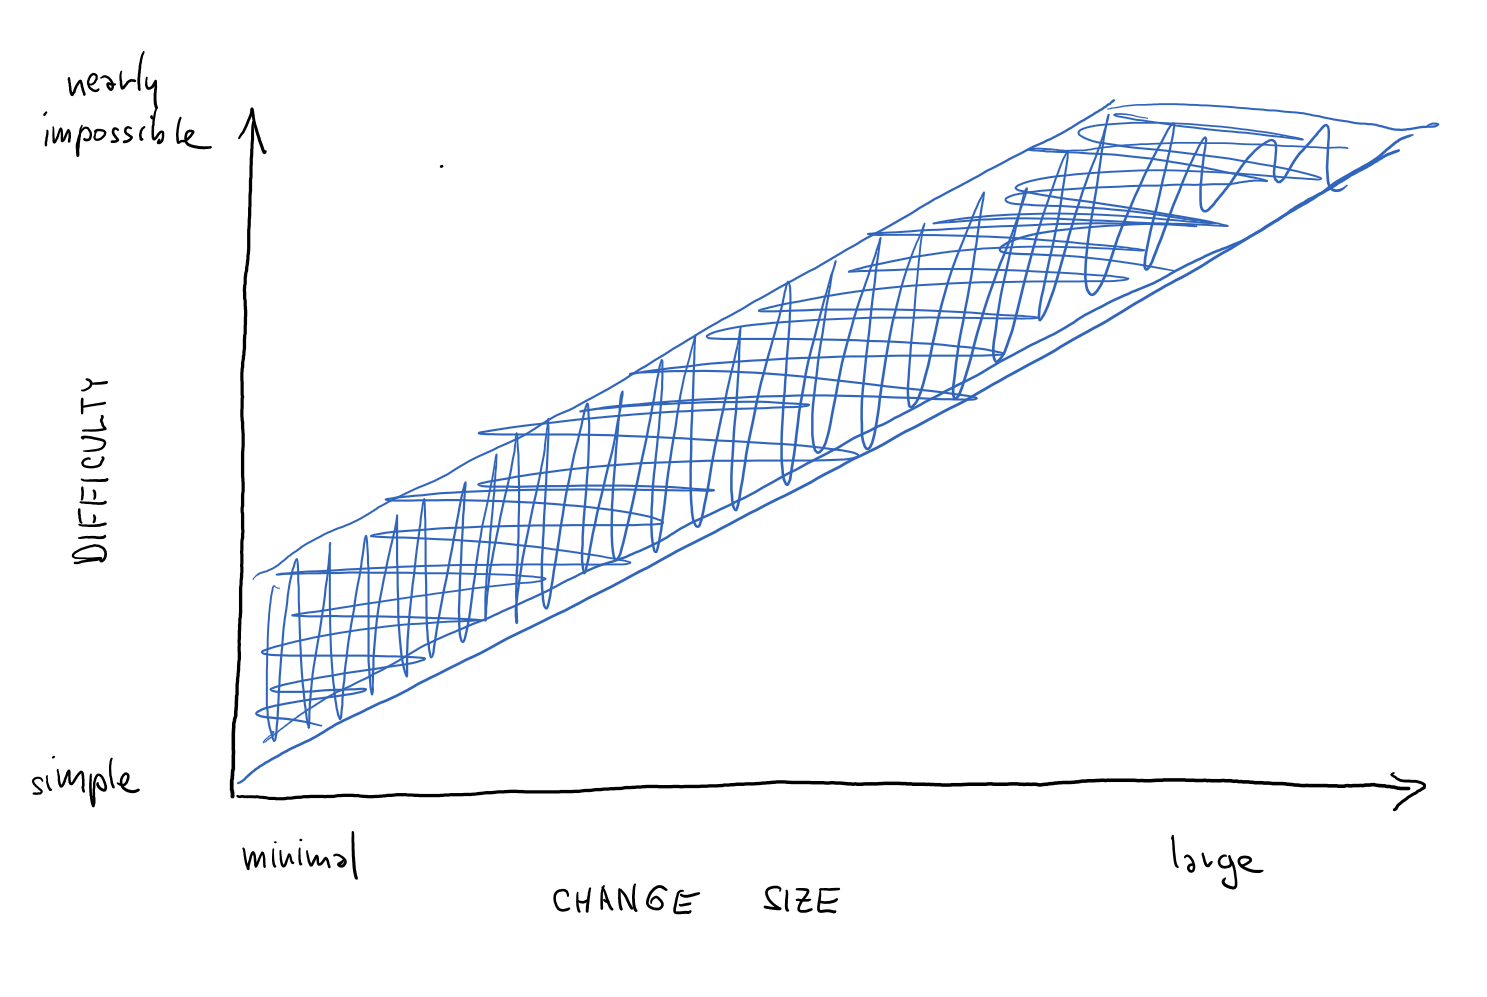 nearly
impossible
DIFFICULTY
simple
minimal
large
CHANGE SIZE